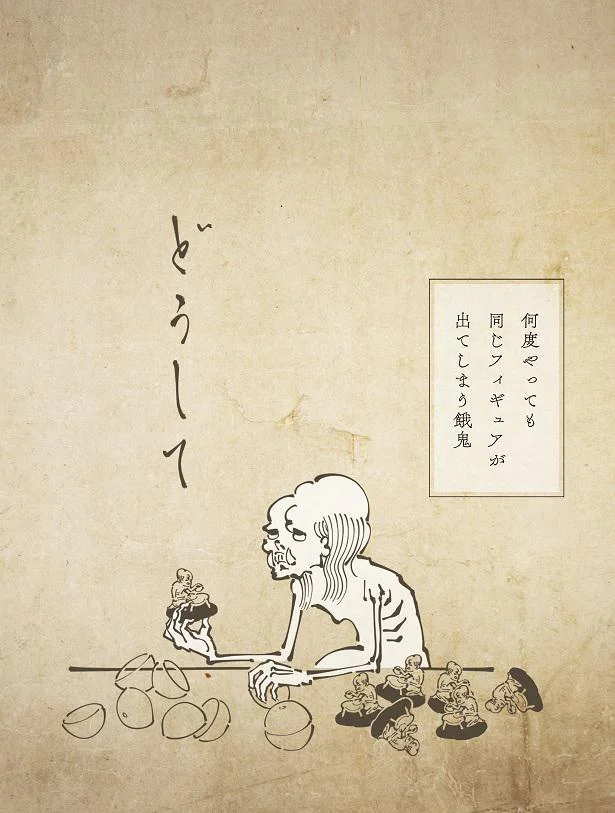 何度やっても
同じフィギュアが
出てしまう餓鬼
どうして